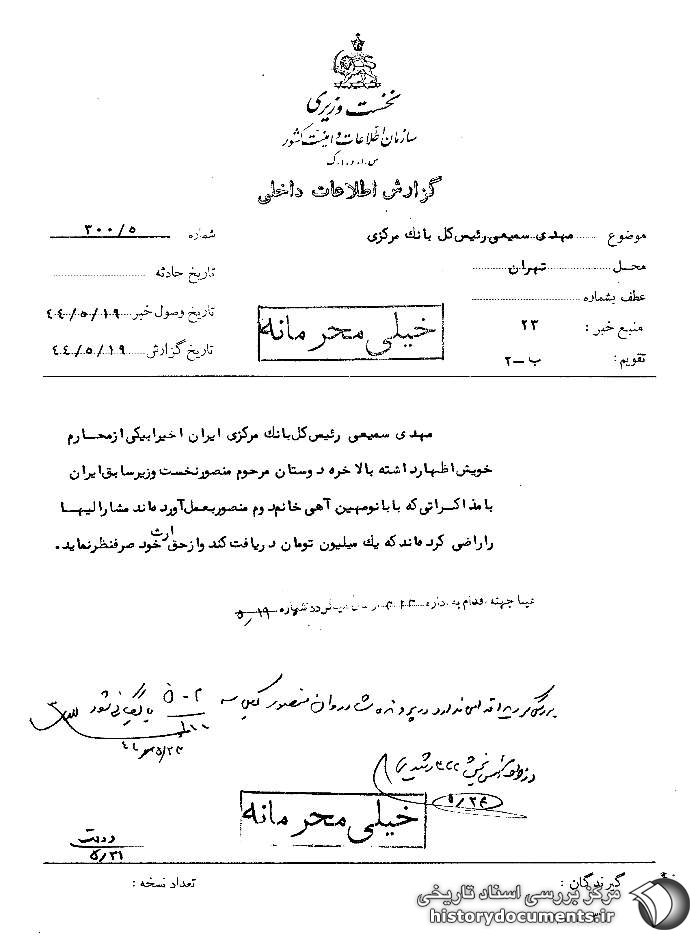 نخست وزیری
سازمان اطلاعات و امنیت کشور
س.ا.و.ا.ک
گزارش اطلاعات داخلی
موضوع مهدی سمیعی رئیس کل بانک مرکزی
شماره ۳۰۰/۵
محل تهران
تاریخ حادثه
عطف بشماره
تاریخ وصول خبر ۴۴/۵/۱۹
منبع خبر : ۲۳
تاریخ گزارش ۴۴/۵/۱۹
تقویم : ب -۲
خیلی محرمانه
مهدی سمیعی رئیس کل بانک مرکزی ایران اخیرا بیکی از محارم
خویش اظهار داشته بالاخره دوستان مرحوم منصور نخست وزیر سابق ایران
با مذاکراتی که با بانو مهین آهی خانم دوم منصور بعمل آورده اند مشارالیها
را راضی کرده اند که یک میلیون تومان دریافت کند و از حق ارث خود صرفنظر نماید.
عینا جهت اقدام به اداره شماره ۵/۱۹
در پرونده شادروان منصور بایگانی شود
۴۴/۵/۲۳
۵/۲۴
خیلی محرمانه
۵/۳۱
گیرندگان :
تعداد نسخه :
مرکز بررسی اسناد تاریخی
historydocuments.ir